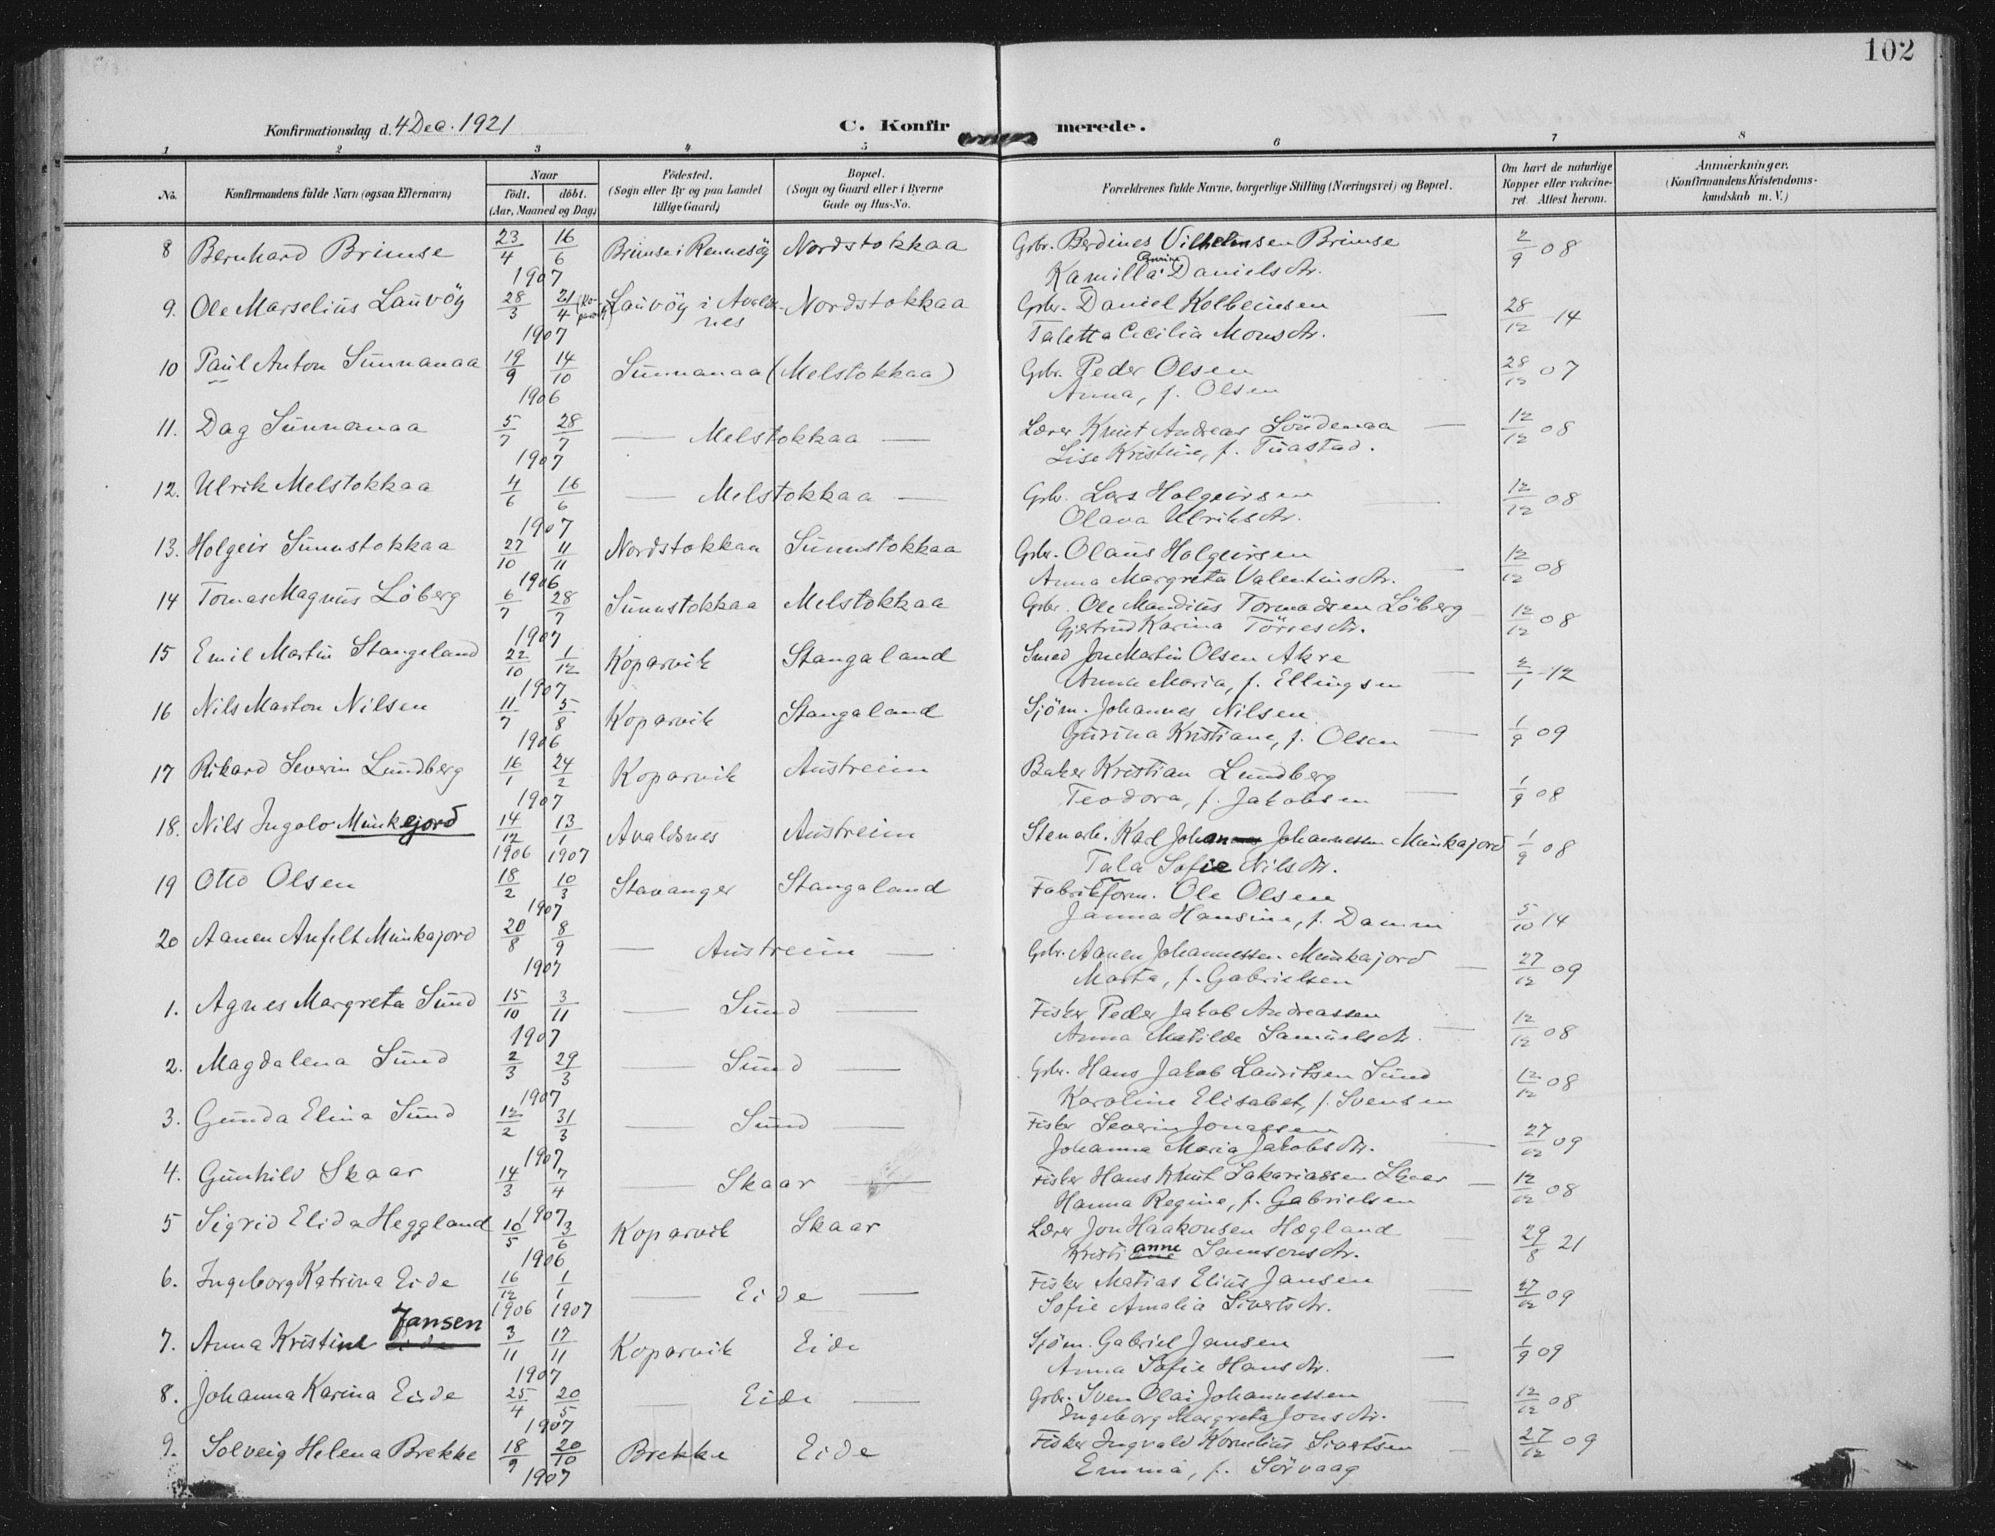 102
Konfirmationsdag d. 4 Dec. 1921
C. Konfirmerede.
1 2 3 4 5 6 7 8
No. Konfirmandens fulde Navn (ogsaa Efternavn) Naar født. døbt. (Aar, Maaned og Dag) Fødested. (Sogn eller By og paa Landet tillige Gaard) Bopæl. (Sogn og Gaard eller i Byerne Gade og Hus-No. Forældrenes fulde Navne, borgerlige Stilling (Næringsvei) og Bopæl. Om havt de naturlige Kopper eller vakcineret. Attest herom. Anmærkninger. (Konfirmandens Kristendomskundskab m. V.)
8 Bernhard Brimse 23/4 16/6 1907 Brimse i Rennesöy Nordstokkaa Gbr. Berdines Vilhelmsen Brimse 2/9 08
Kamilla Danielsdtr.
9. Ole Marselius Lauvöy 28/3 21/4 1907 Lauvöy i Avaldsnes Nordstokkaa Gbr. Daniel Kolbeinsen 28/12 14
Taletta Cecilia Monsdtr.
10 Paul Anton Sunnanaa 19/9 14/10 1906 Sunnanaa (Melstokkaa) Gbr. Peder Olsen 28/12 07
Anna, f. Olsen
11. Dag Sunnanaa 5/7 28/7 1907 — Melstokkaa — Lærer Knut Andreas Söndenaa 12/12 08
Lise Kristine, f. Tuastad.
12. Ulrik Melstokkaa 4/6 16/6 1907 — Melstokkaa — Gbr. Lars Holgeirsen 12/12 08
Olava Ulriksdtr.
13. Holgeir Sunnstokkaa 27/10 11/11 1906 Nordstokkaa Sunnstokkaa Gbr. Olaus Holgeirsen 12/12 08
Anna Margreta Valentinsdtr.
14 Tomas Magnus Löberg 6/7 28/7 1907 Sunnstokkaa Melstokkaa Gbr. Ole Mandius Tormodsen Löberg 12/12 08
Gjertrud Karina Törresdtr.
15 Emil Martin Stangeland 22/10 1/12 1907 Koparvik Stangaland Smed Jon Martin Olsen Akre 2/1 12
Anna Maria, f. Ellingsen
16 Nils Marton Nilsen 11/7 5/8 1906 Koparvik Stangaland Sjöm. Johannes Nilsen 1/9 09
Gurina Kristiane, f. Olsen
17 Rikard Severin Lundberg 16/1 24/2 1907 Koparvik Austreim Baker Kristian Lundberg 1/9 08
Teodora, f. Jakobsen
18. Nils Ingolv Munkejord 14/12 13/1 1906 1907 Avaldsnes Austreim Stenarb. Karl Johan Johannessen Munkajord 1/9 08
Tala Sofie Nilsdtr.
19 Otto Olsen 18/2 10/3 1907 Stavanger Stangaland Fabrikform. Ole Olsen 5/10 14
Janna Hansine, f. Damm
20 Aanen Anfelt Munkajord 20/8 8/9 1907 — Austreim — Gbr. Aanen Johannessen Munkajord 27/12 09
Marta, f. Gabrielsen
1. Agnes Margreta Sund 15/10 3/11 1907 — Sund — Fisker Peder Jakob Andreassen 12/12 08
Anna Matilde Samuelsdtr.
2. Magdalena Sund 2/3 29/3 1907 — Sund — Gbr. Hans Jakob Lauritsen Sund 12/12 08
Karoline Elisabet, f. Svensen
3. Gunda Elina Sund 12/2 31/3 1907 — Sund — Fisker Severin Jonassen 27/12 09
Johanna Maria Jakobsdtr.
4. Gunhild Skaar 14/3 7/4 1907 — Skaar — Fisker Hans Knut Sakariassen Skaar 12/12 08
Hanna Regine, f. Gabrielsen
5 Sigrid Elida Heggland 10/5 3/6 1906 Koparvik Skaar Lærer Jon Haakonsen Hægland 29/8 21
Kristianne Samsonsdtr.
6. Ingeborg Katrina Eide 16/12 1/1 1906 1907 — Eide — Fisker Matias Elius Jansen 27/12 09
Sofie Amalia Sivertsdtr.
7. Anna Kristine Jansen 3/11 17/11 1907 Koparvik Eide Sjöm. Gabriel Jansen 1/9 09
Anna Sofie Hansdtr.
8. Johanna Karina Eide 25/4 20/5 1907 — Eide — Gbr. Sven Olai Johannessen 12/12 08
Ingeborg Margreta Jonsdtr.
9. Solveig Helena Brekke 18/9 20/10 1907 Brekke Eide Fisker Ingvald Kornelius Sivertsen 27/12 09
Emma, f. Sörvaag